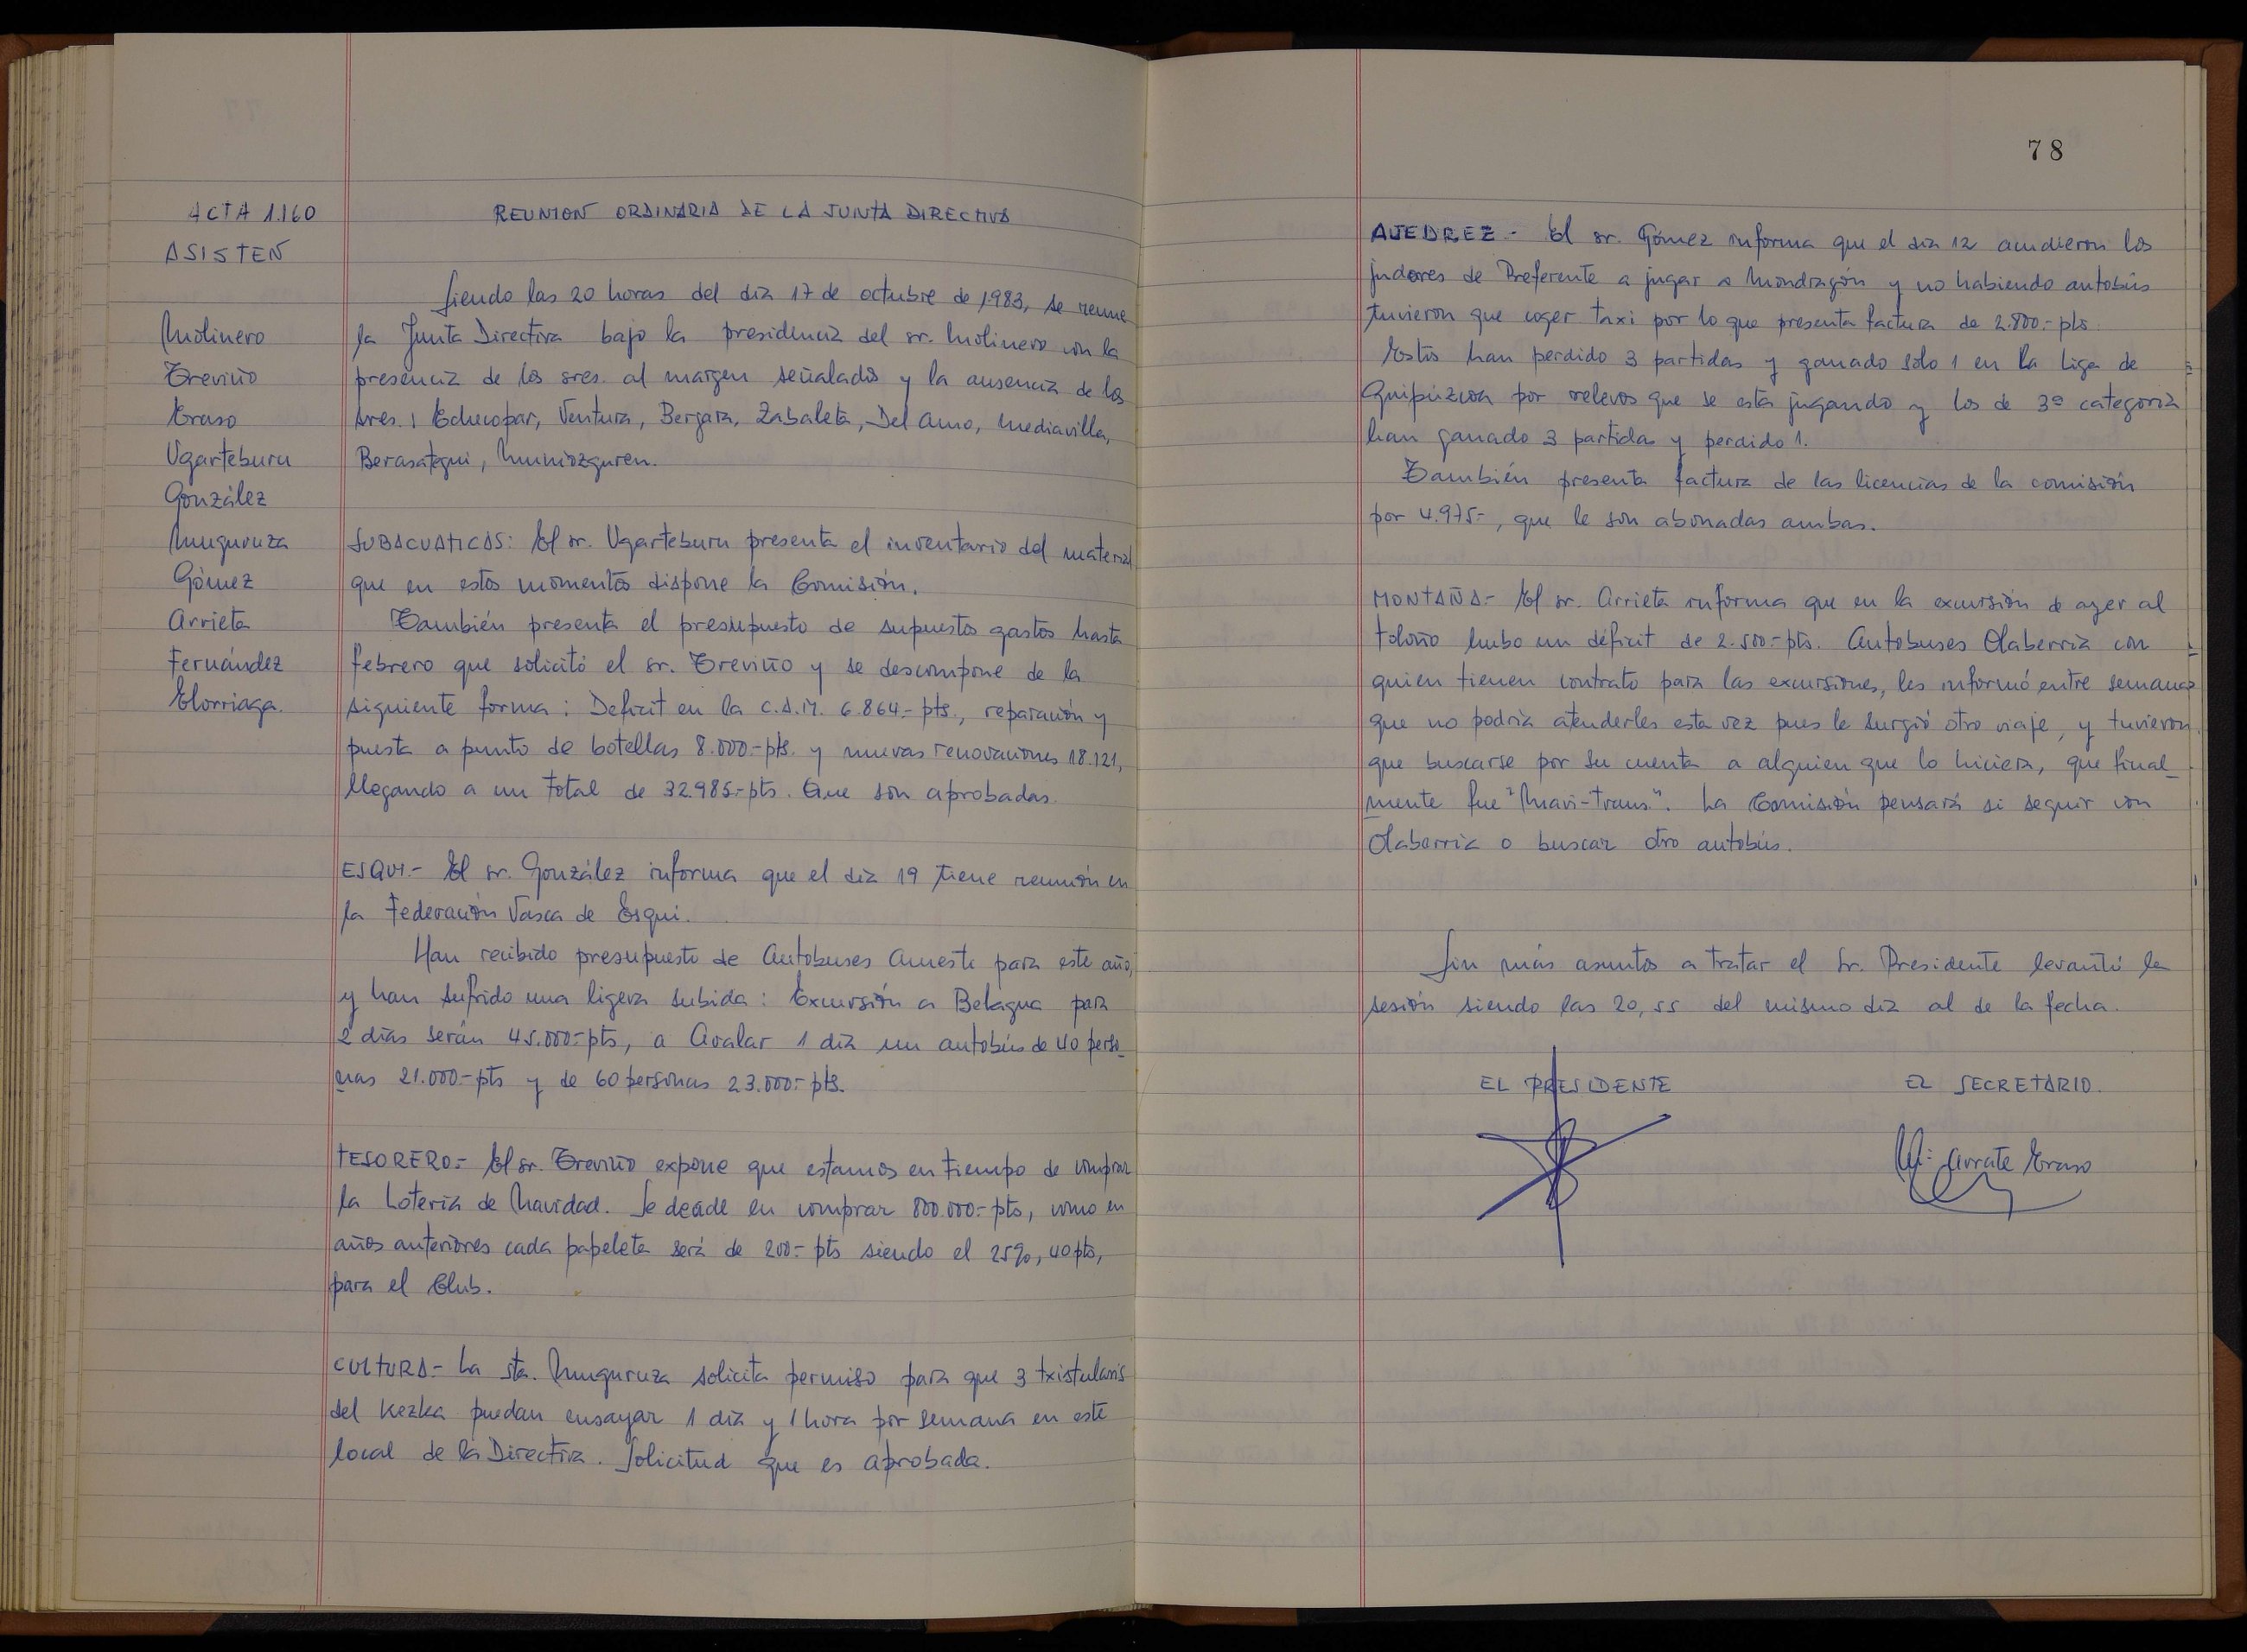 ACTA 1.160
REUNION ORDINARIA DE LA JUNTA DIRECTIVA
ASISTEN
Molinero
Treviño
Eraso
Ugarteburu
González
Muguruza
Gómez
Arrieta
Fernández
Elorriaga.
Siendo las 20 horas del día 17 de octubre de 1983, se reune
la Junta Directiva bajo la presidencia del sr. Molinero con la
presencia de los sres. al margen señalados y la ausencia de los
sres.: Echecopar, Ventura, Bergara, Zabaleta, Del Amo, Mediavilla,
Berasategui, Muniozguren.
SUBACUATICAS: El sr. Ugarteburu presenta el inventario del material
que en estos momentos dispone la Comisión.
También presenta el presupuesto de supuestos gastos hasta
febrero que solicitó el sr. Treviño y se descompone de la
siguiente forma: Deficit en la C.A.M. 6.864.- pts., reparación y
puesta a punto de botellas 8.000.- pts. y nuevas renovaciones 18.121,
llegando a un total de 32.985.- pts. Que son aprobadas.
ESQUI.- El sr. González informa que el día 19 tiene reunión en
la Federación Vasca de Esqui.
Han recibido presupuesto de Autobuses Amesti para este año,
y han sufrido una ligera subida: Excursión a Belagua para
2 días serán 45.000.- pts, a Avalar 1 día un autobús de 40 perso_
nas 21.000.- pts y de 60 personas 23.000.- pts.
TESORERO.- El sr. Treviño expone que estamos en tiempo de comprar
la Lotería de Navidad. Se decide en comprar 800.000.- pts, como en
años anteriores cada papeleta será de 200.- pts siendo el 25%, 40 pts,
para el Club.
CULTURA.- La sta. Muguruza solicita permiso para que 3 txistularis
del Kezka puedan ensayar 1 día y 1 hora por semana en este
local de la Directiva. Solicitud que es aprobada.
78
AJEDREZ.- El sr. Gómez informa que el día 12 acudieron los
judores de Preferente a jugar a Mondragón y no habiendo autobús
tuvieron que coger taxi por lo que presenta factura de 2.800.- pts.
Estos han perdido 3 partidas y ganado sólo 1 en la liga de
Guipúzcoa por relevos que se está jugando y los de 3ª categoría
han ganado 3 partidas y perdido 1.
También presenta factura de las licencias de la comisión
por 4.975.-, que le son abonadas ambas.
MONTAÑA.- El sr. Arrieta informa que en la excursión de ayer al
Toloño hubo un déficit de 2.500.- pts. Autobuses Olaberría con
quien tienen contrato para las excursiones, les informó entre semana
que no podría atenderles esta vez pues le surgió otro viaje, y tuvieron
que buscarse por su cuenta a alguien que lo hiciera, que final_
mente fue "Navi-Trans". La Comisión pensará si seguir con
Olaberría o buscar otro autobús.
Sin más asuntos a tratar el Sr. Presidente levantó la
sesión siendo las 20,55 del mismo día al de la fecha.
EL PRESIDENTE
EL SECRETARIO.
Mª Arrate Eraso